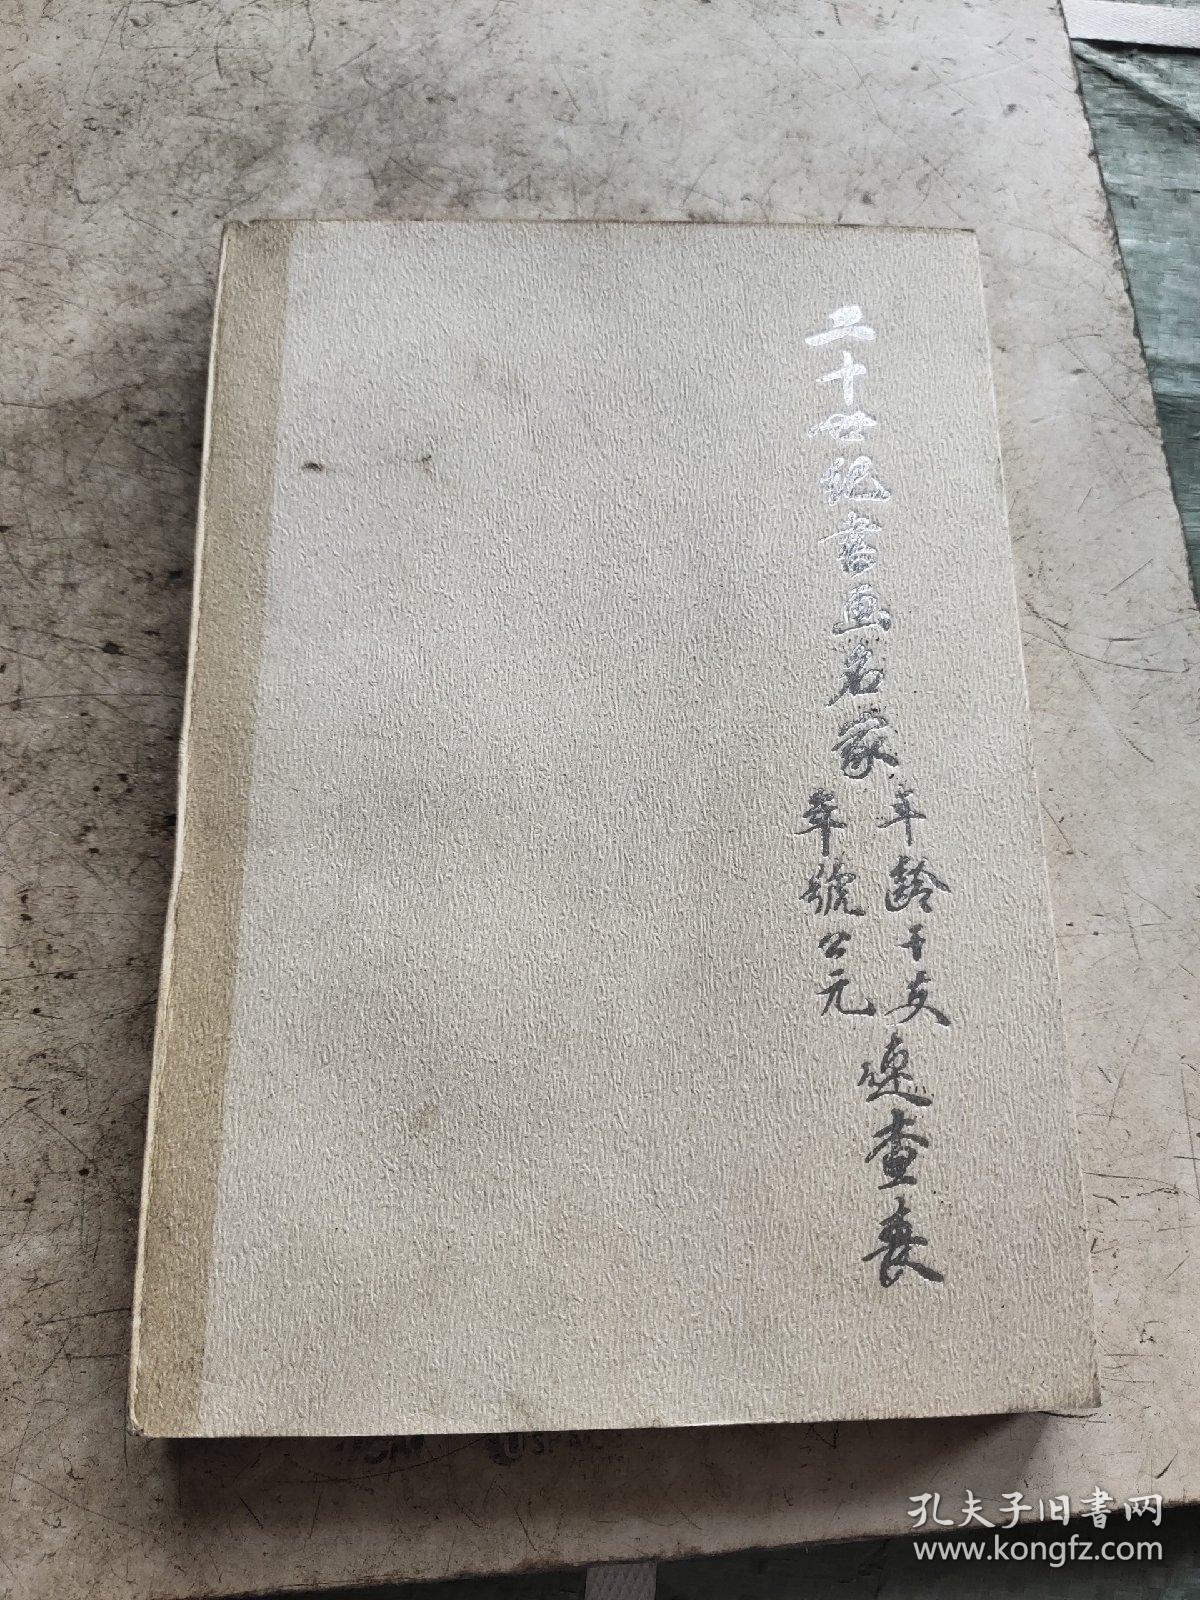 二十世纪書画名家
年齡干支
年號公元
速查表
孔夫子旧書网
www.kongfz.com